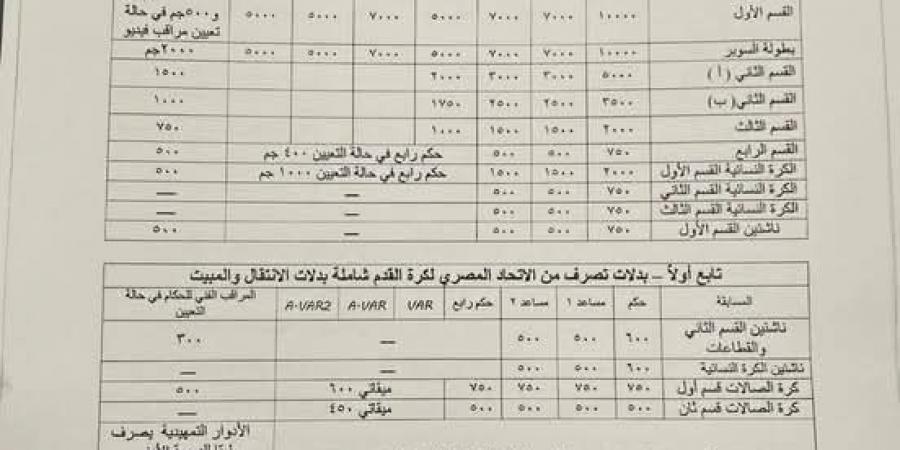 القسم الأول ١٠٠٠٠ ٧٠٠٠ ٧٠٠٠ ٥٠٠٠ ٧٠٠٠ ٥٠٠٠ ٥٠٠٠ و٥٠٠جم في حالة
تعيين مراقب فيديو
بطولة السوبر ١٠٠٠٠ ٧٠٠٠ ٧٠٠٠ ٥٠٠٠ ٧٠٠٠ ٥٠٠٠ ٥٠٠٠ ٢٠٠٠جم
القسم الثاني (أ) ٥٠٠٠ ٣٠٠٠ ٣٠٠٠ ٢٠٠٠ ١٥٠٠
القسم الثاني (ب) ٣٥٠٠ ٢٥٠٠ ٢٥٠٠ ١٧٥٠ ١٠٠٠
القسم الثالث ٢٠٠٠ ١٥٠٠ ١٥٠٠ ١٠٠٠ ٧٥٠
القسم الرابع ٧٥٠ ٥٠٠ ٥٠٠ حكم رابع في حالة التعيين ٤٠٠ جم ٥٠٠
الكرة النسائية القسم الأول ٢٠٠٠ ١٥٠٠ ١٥٠٠ حكم رابع في حالة التعيين ١٠٠٠ جم ٥٠٠
الكرة النسائية القسم الثاني ٧٥٠ ٥٠٠ ٥٠٠ — —
الكرة النسائية القسم الثالث ٧٥٠ ٥٠٠ ٥٠٠ — —
ناشئين القسم الأول ٧٥٠ ٥٠٠ ٥٠٠ — ٥٠٠
تابع أولاً – بدلات تصرف من الاتحاد المصري لكرة القدم شاملة بدلات الانتقال والمبيت
المسابقة حكم مساعد ١ مساعد ٢ حكم رابع VAR A-VAR A-VAR2 المراقب الفني للحكام في حالة
التعيين
ناشئين القسم الثاني
والقطاعات ٦٠٠ ٥٠٠ ٥٠٠ — ٣٠٠
ناشئين الكرة النسائية ٦٠٠ ٥٠٠ ٥٠٠ — —
كرة الصالات قسم أول ٧٥٠ ٧٥٠ ٧٥٠ ٧٥٠ ميقاتي ٦٠٠ ٥٠٠
كرة الصالات قسم ثان ٥٠٠ ٥٠٠ ٥٠٠ ٥٠٠ ميقاتي ٤٥٠ —
الأدوار التمهيدية يصرف